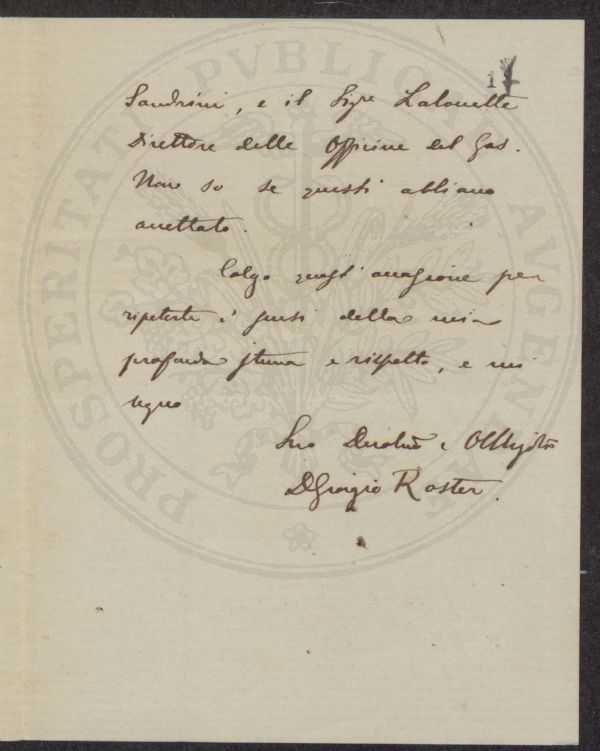 17
Sandrini, e il Sigre Lalouette
Direttore delle Officine del Gas.
Non so se questi abbiano
accettato.
Colgo quest'occasione per
ripeterle i sensi della mia
profonda stima e rispetto, e mi
segno
Suo Devotmo e Obbligatmo
D Giorgio Roster.
PROSPERITATI PVBLICAE AVGENDAE